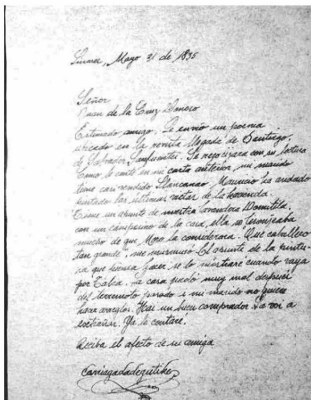 Mayo 31 de 1835
Señor
Juan de la Cruz Donoso
Estimado amigo. Le envío un poema
en la revista llegada de Santiago,
de Salvador Sanfuentes. Se regocijara con su lectura
Como le conté en mi carta anterior, mi marido
tiene casi vendido Mauricio ha andado
pintando las ultimas vistas de la hacienda
Tiene un asunto de nuestra
con un campesino de la casa, ella se
mucho de que Moro la considerara. Que caballero
tan grande, me El asunto de la pintu
ra que piensa hacer se lo mostrare cuando vaya
por Talca. La casa quedó muy mal después
del terremoto pasado y mi marido no quiere
hara arreglos. Hai un buen comprador. La voi a
extrañar. Ya le contare.
Reciba el afecto de su amiga
carmenariagadadegutike